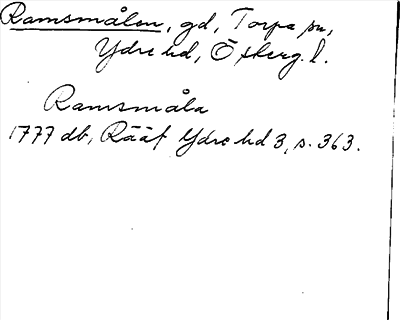 Ramsmålen, gd, Torpa sn,
Ydre hd, Östberg. l.
Ramsmåla
1777 db, Rääf Ydre hd 3, s. 363.